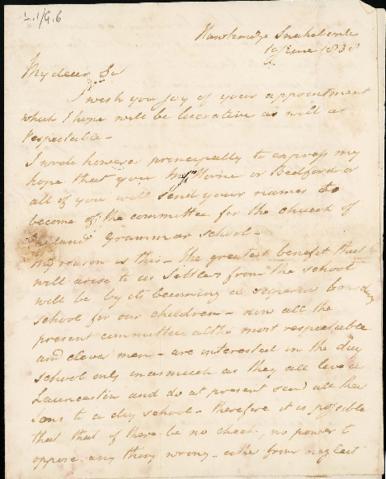 L.1/G.6
Hawkridge Snake Banks
June 183
My dear Sir
I wish you joy of your appointment
which I hope will be lucrative as well as
respectable -
I write however principally to express my
hope that you Mr Horne or Bedford or
all of you will send your names to
become of the committee for the church of
Grammar School -
My reason is this - the greatest benefit that
will arise to us Settlers from the school
will be by its becoming a superior boarding
school for our children - now all the
present committee altho most respectable
and clever men - are interested in the day
school only inasmuch as they all live in
Launceston and do at present send all their
sons to a day school - therefore it is possible
that if there be no check, no power to
oppose any thing wrong - either from neglect